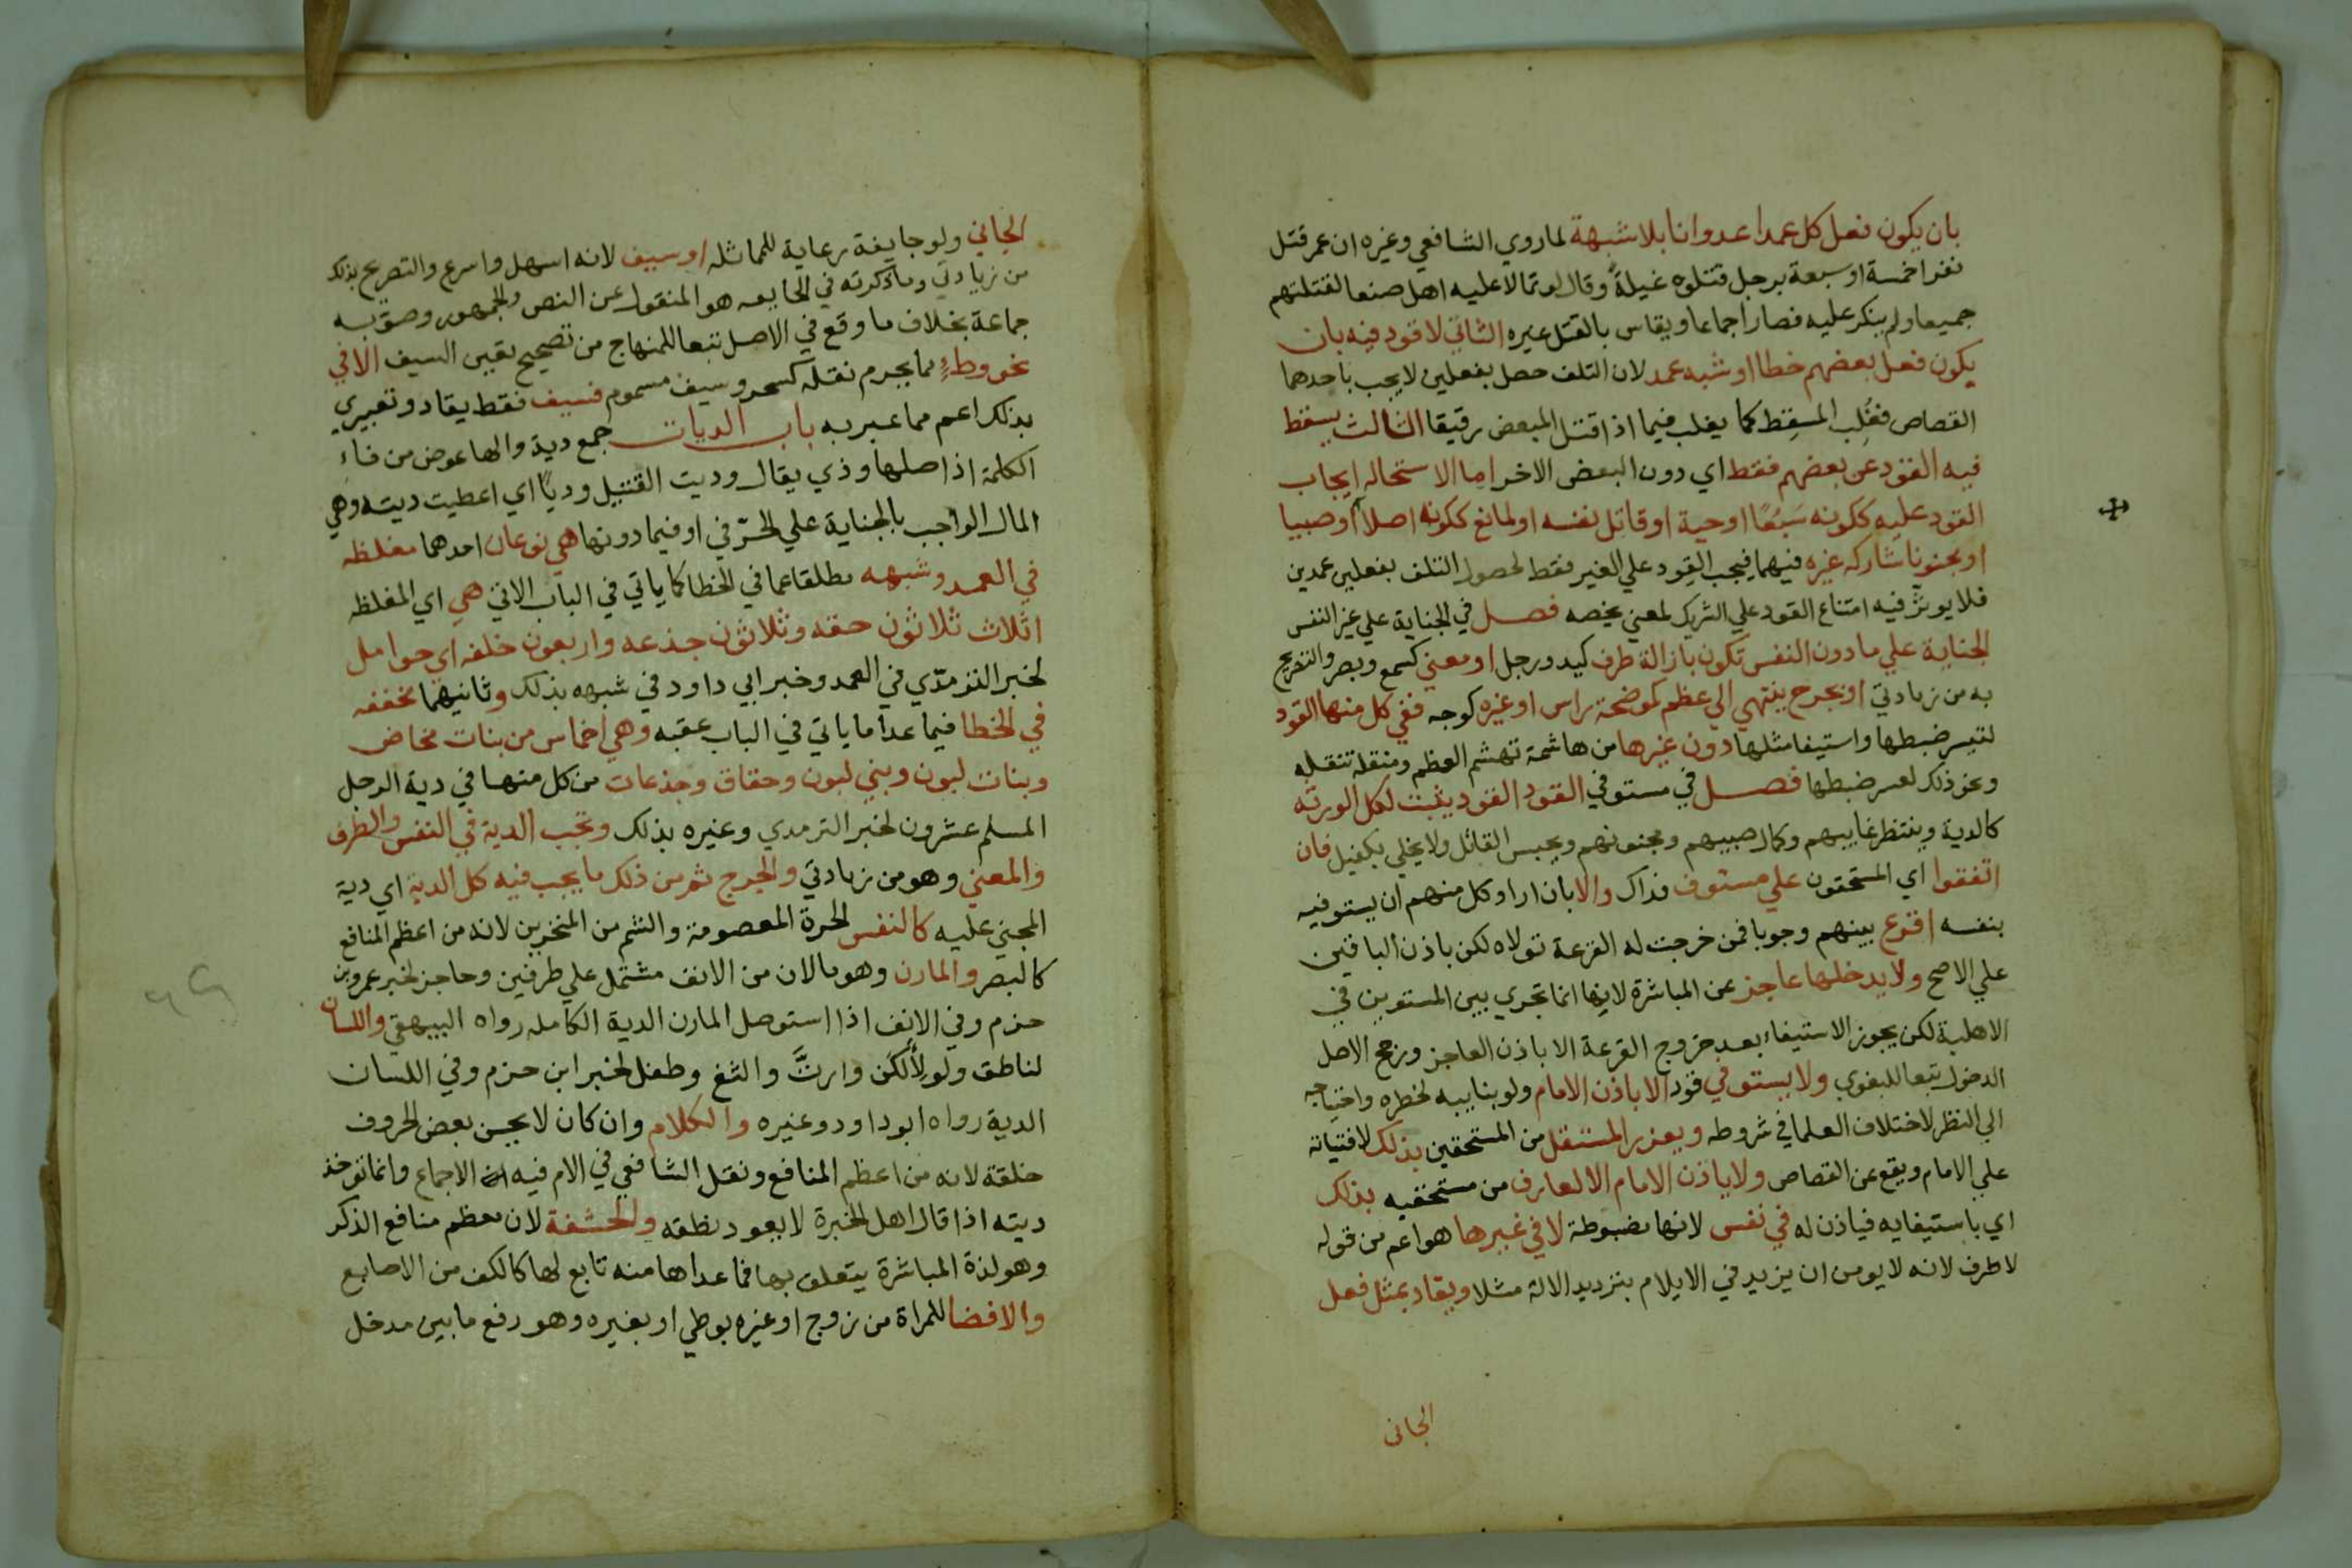 بان يكون فعل كل عمدا عدوانا بلا شبهة لما روي الشافعي وغيره ان عمر قتل
نفرا خمسة او سبعة برجل قتلوه غيلة وقال لو تمالا عليه اهل صنعا لقتلتهم
جميعا ولم ينكر عليه فصار اجماعا ويقاس بالقتل غيره الثاني لا قود فيه بان
يكون فعل بعضهم خطا او شبه عمد لان التلف حصل بفعلين لا يجب باحدهما
القصاص فغُلِب المسقِط كما يغلب فيما اذا قتل المبعض رقيقا الثالث يسقط
فيه القود عن بعضهم فقط اي دون البعض الاخر اما الاستحاله ايجاب
القود عليه ككونه سَبُعًا او حية او قاتل نفسه او لمانع ككونه اصلا او صبيا
او مجنونا شاركه غيره فيهما فيجب القود علي الغير فقط لحصول التلف بفعلين عمدين
فلا يوثر فيه امتناع القود علي الشريك لمعني يخصه فصل في الجناية علي غير النفس
الجناية علي ما دون النفس تكون بازالة طرف كيد ورجل او معني كسمع وبصر والتصريح
به من زيادتي او بجرح ينتهي الي عظم كموضحة راس او غيره كوجه ففي كل منها القود
لتيسر ضبطها واستيفا مثلها دون غيرها من هاشمة تهشم العظم ومنقلة تنقله
ونحو ذلك لعسر ضبطها فصل في مستوفي القود القود يثبت لكل الورثه
كالدية وينتظر غايبهم وكمال صبيهم ومجنونهم ويحبس القاتل ولا يخلي بكفيل فان
اتفقوا اي المستحقون علي مستوف فذاك والا بان اراد كل منهم ان يستوفيه
بنفسه اقرع بينهم وجوبا فمن خرجت له القرعة تولاه لكن باذن الباقين
علي الاصح ولا يدخلها عاجز عن المباشرة لانها انما تجري بين المستوين في
الاهلية لكن يجوز الاستيفاء بعد خروج القرعة الا باذن العاجز ورجح الاصل
الدخول تبعا للبغوي ولا يستوفي قود الا باذن الامام ولو بنايبه لخطره واحتياجه
الي النظر لاختلاف العلما في شروطه ويعزر المستقل من المستحقين بذلك لافتياته
علي الامام ويقع عن القصاص ولا ياذن الامام الا لعارف من مستحقيه بذلك
اي باستيفايه فياذن له في نفس لانها مضبوطة لا في غيرها هو اعم من قوله
لا طرف لانه لا يومن ان يزيد في الايلام بترديد الالة مثلا ويقاد بمثل فعل
الجاني
الجاني ولو جايفة رعاية للمماثله او سيف لانه اسهل واسرع والتصريح بذلك
من زيادتي وما ذكرته في الجايفه هو المنقول عن النص والجمهور وصوبه
جماعة بخلاف ما وقع في الاصل تبعا للمنهاج من تصحيح تعين السيف الا في
نحو وطءٍ مما يحرم نقله كسحر وسيف مسموم فسيف فقط يقاد وتعبيري
بذلك اعم مما عبر به باب الديات جمع دية والها عوض من فاء
الكلمة اذ اصلها وذي يقال وديت القتيل وديًا اي اعطيت ديته وهي
المال الواجب بالجناية علي الحرّ في او فيما دونها هي نوعان احدهما مغلظه
في العمد وشبهه مطلقا عما في الخطا كما ياتي في الباب الاتي هي اي المغلظه
اثلاث ثلاثون حقه وثلاثون جذعه واربعون خلفه اي حوامل
لخبر الترمذّي في العمد وخبر ابي داود في شبهه بذلك وثانيهما مخففه
في الخطا فيما عدا ما ياتي في الباب عقبه وهي اخماس من بنات مخاض
وبنات لبون وبني لبون وحقاق وجذعات من كل منها في دية الرجل
المسلم عشرون لخبر الترمدي وغيره بذلك وتجب الدية في النفس والطرف
والمعني وهو من زيادتي والجرح ثم من ذلك ما يجب فيه كل الدية اي دية
المجني عليه كالنفس الحرة المعصومة والشم من المنخرين لانه من اعظم المنافع
كالبصر والمارن وهو مالان من الانف مشتمل علي طرفين وحاجز لخبر عمرو بن
حزم وفي الانف اذا استوصل المارن الدية الكامله رواه البيهقي واللسان
لناطق ولو لألكن وارتَّ والثغ وطفل لخبر ابن حزم وفي اللسان
الدية رواه ابو داود وغيره والكلام وان كان لا يحسن بعض الحروف
خلقة لانه من اعظم المنافع ونقل الشافعي في الام فيه الاجماع وانما توخذ
ديته اذا قال اهل الخبرة لا يعود نطقه والحشفة لان معظم منافع الذكر
وهو لذة المباشرة يتعلق بها فما عداها منه تابع لها كالكف من الاصابع
والافضا للمراة من زوج او غيره بوطي او بغيره وهو رفع ما بين مدخل